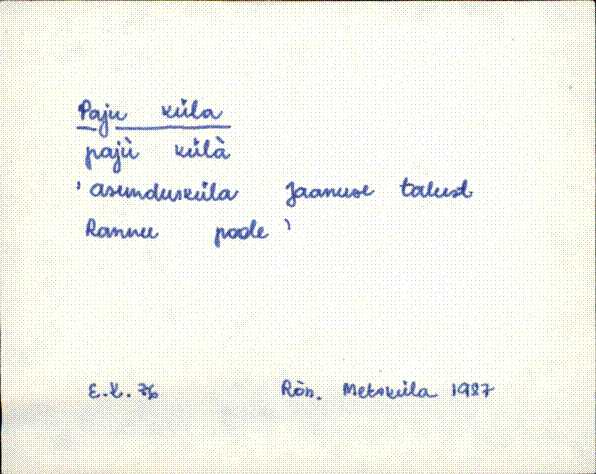 Paju küla
pajù külà
' asundusküla Jaanuse talust
Rannu poole '
E.K. 76 Rõn. Metsküla 1987